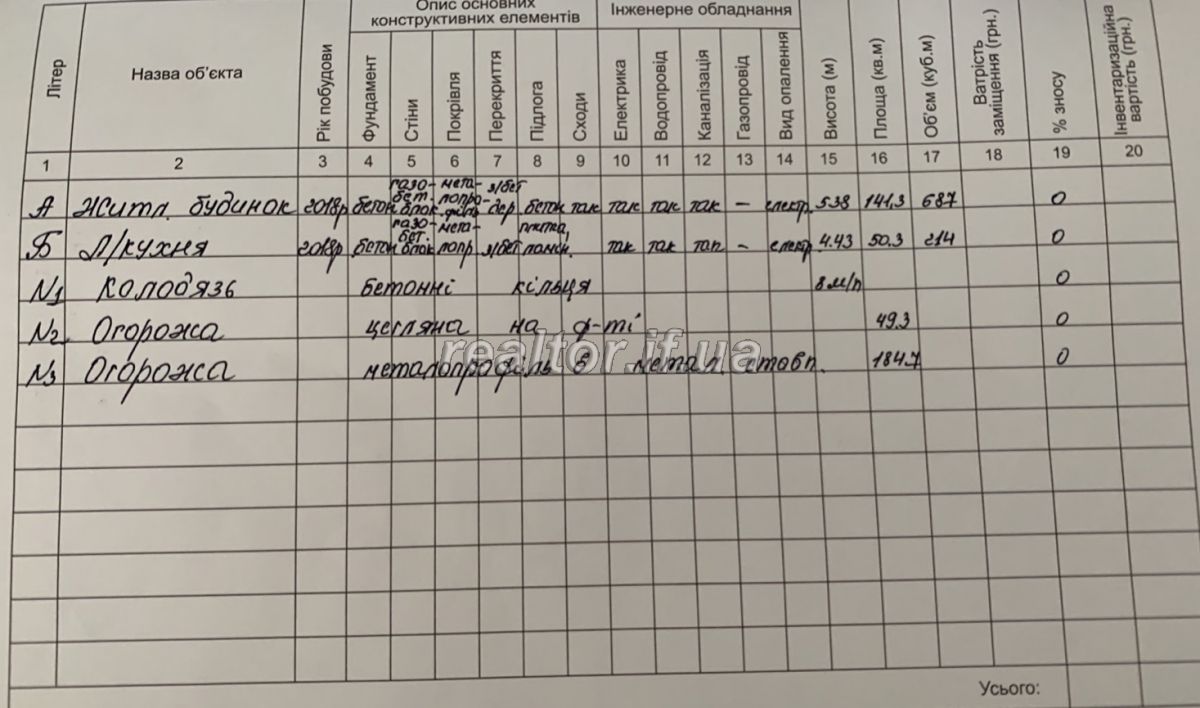 Опис основних конструктивних елементів
Інженерне обладнання
Літер
Назва об'єкта
Рік побудови
Фундамент
Стіни
Покрівля
Перекриття
Підлога
Сходи
Електрика
Водопровід
Каналізація
Газопровід
Вид опалення
Висота (м)
Площа (кв.м)
Об'єм (куб.м)
Ватрість заміщення (грн.)
% зносу
Інвентаризаційна вартість (грн.)
1 2 3 4 5 6 7 8 9 10 11 12 13 14 15 16 17 18 19 20
А Житл. будинок 2018р. бетон газобет. блок металопрофіль з/бет дер. бетон так так так так – електр. 5.38 141,3 687 0
Б Л/кухня 2018р. бетон газобет. блок металопр. з/бет плитка, ламін. так так так – електр. 4.43 50,3 214 0
N1 Колодязь бетонні кільця 8 м/п 0
N2 Огорожа цегляна на ф-ті 49.3 0
N3 Огорожа металопрофіль в метал. стовп. 184.7 0
realtor.if.ua
Усього: